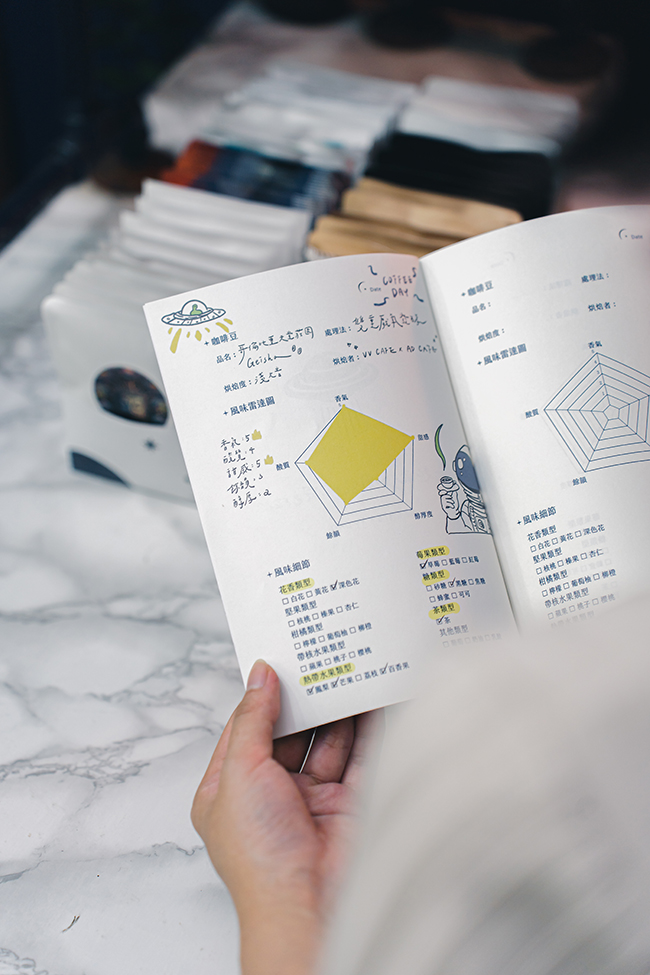 Date COFFEE DAY
✦ 咖啡豆
品名： 哥倫比亞天堂莊園 處理法： 雙重厭氧
Geisha
烘焙度： 淺焙 烘焙者： VV CAFE x AD
✦ 風味雷達圖
香氣
濕感
醇厚度
餘韻
酸質
香氣：5
酸質：4
：5
餘韻：
醇厚：2
✦ 風味細節
花香類型
□白花 □黃花 ☑深色花
堅果類型
□核桃 □榛果 □杏仁
柑橘類型
□檸檬 □葡萄柚 □柳橙
帶核水果類型
□蘋果 □桃子 □櫻桃
熱帶水果類型
☑鳳梨 ☑芒果 □荔枝 ☑百香果
莓果類型
☑草莓 □藍莓 □紅莓
糖類型
□砂糖 ☑黑糖 □焦糖
□蜂蜜 □可可
茶類型
☑茶
其他類型
Date
✦ 咖啡豆
品名： 處理法：
烘焙度： 烘焙者：
✦ 風味雷達圖
香氣
酸質
餘韻
✦ 風味細節
花香類型
□白花 □黃花 □深色花
堅果類型
□核桃 □榛果 □杏仁
柑橘類型
□檸檬 □葡萄柚 □柳橙
帶核水果類型
□蘋果 □桃子 □櫻桃